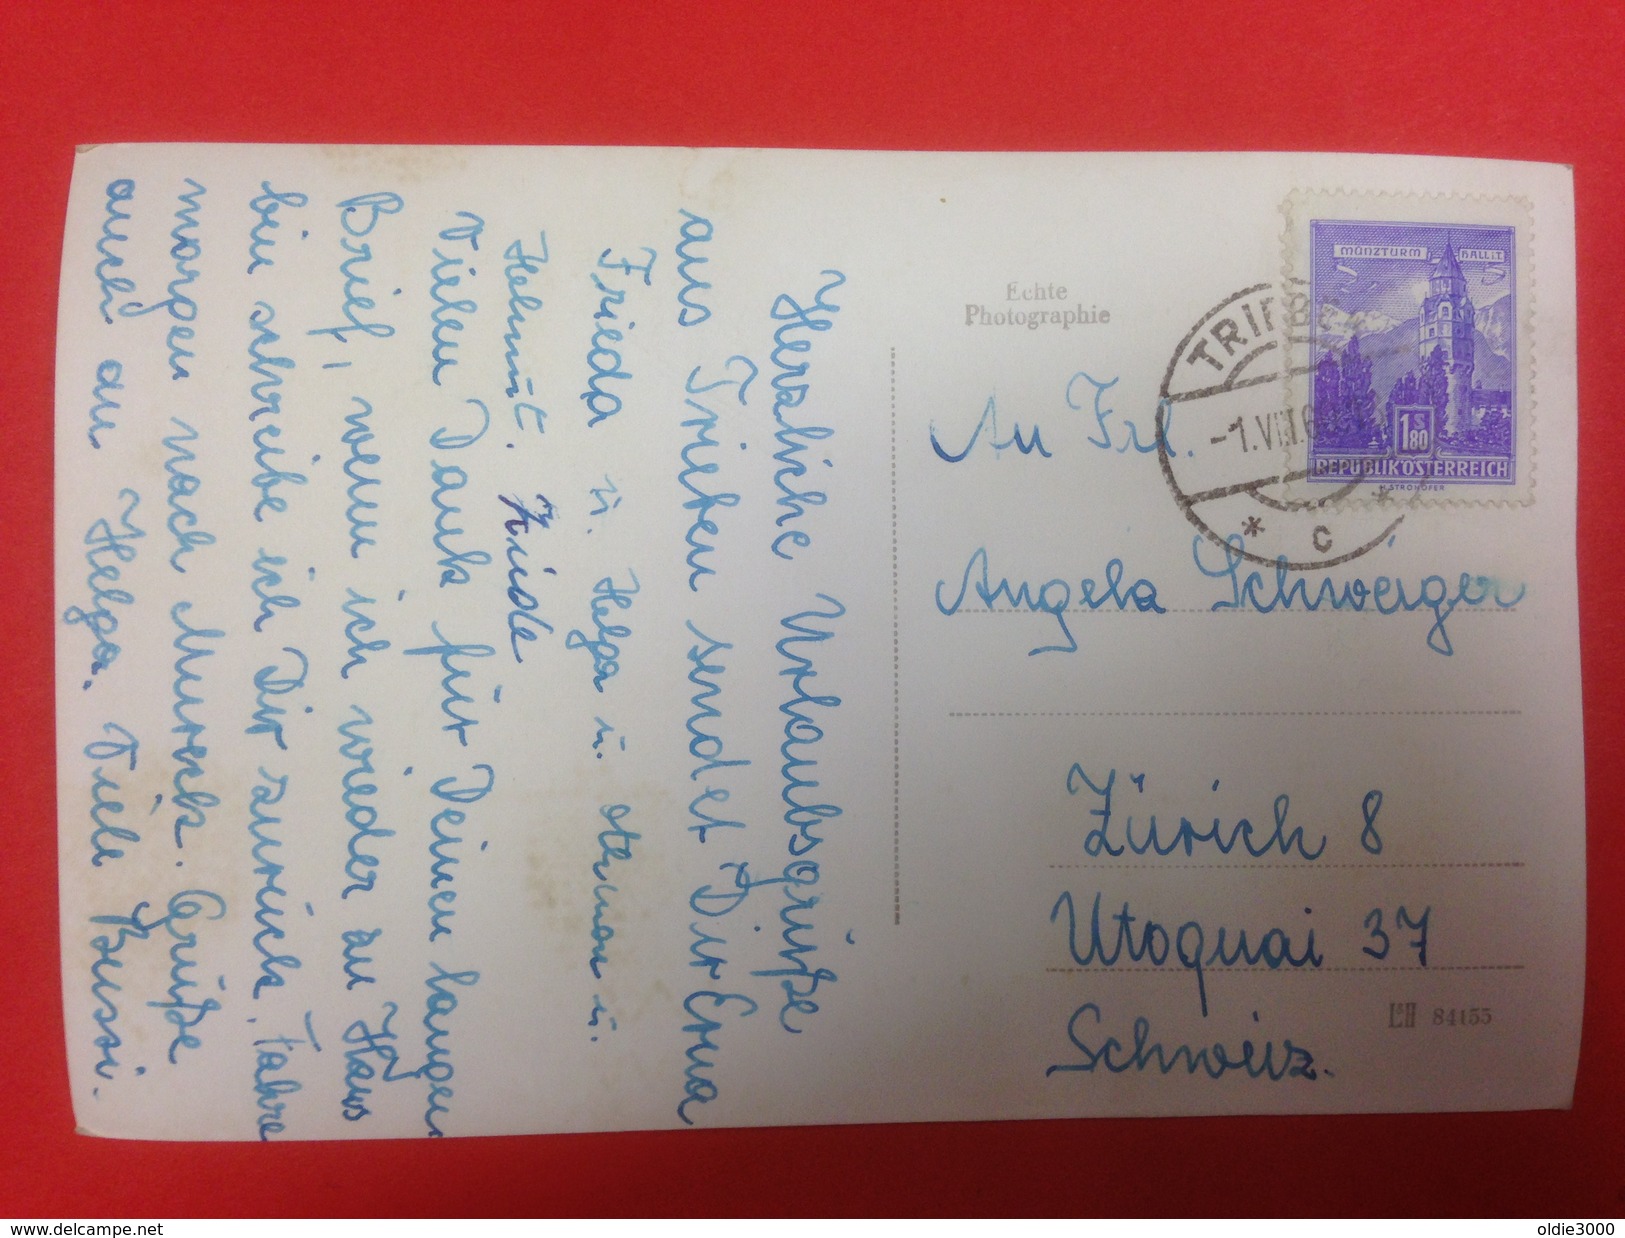 Herzliche Urlaubsgrüße
aus Trieben sendet Dir Erna
Frieda u. Helga u. Otmar u.
Helmut.
Vielen Dank für Deinen langen
Brief, wenn ich wieder zu Haus
bin schreibe ich Dir zurück. Fahre
morgen nach Mureck. Grüße
auch an Helga. Viele Bussi.
Echte
Photographie
MÜNZTURM HALL i.T.
1 S 80
REPUBLIK ÖSTERREICH
TRIEBEN
-1.VIII.6
* C *
An Frl.
Angela Schweiger
Zürich 8
Utoquai 37
Schweiz.
84155
www.delcampe.net
oldie3000